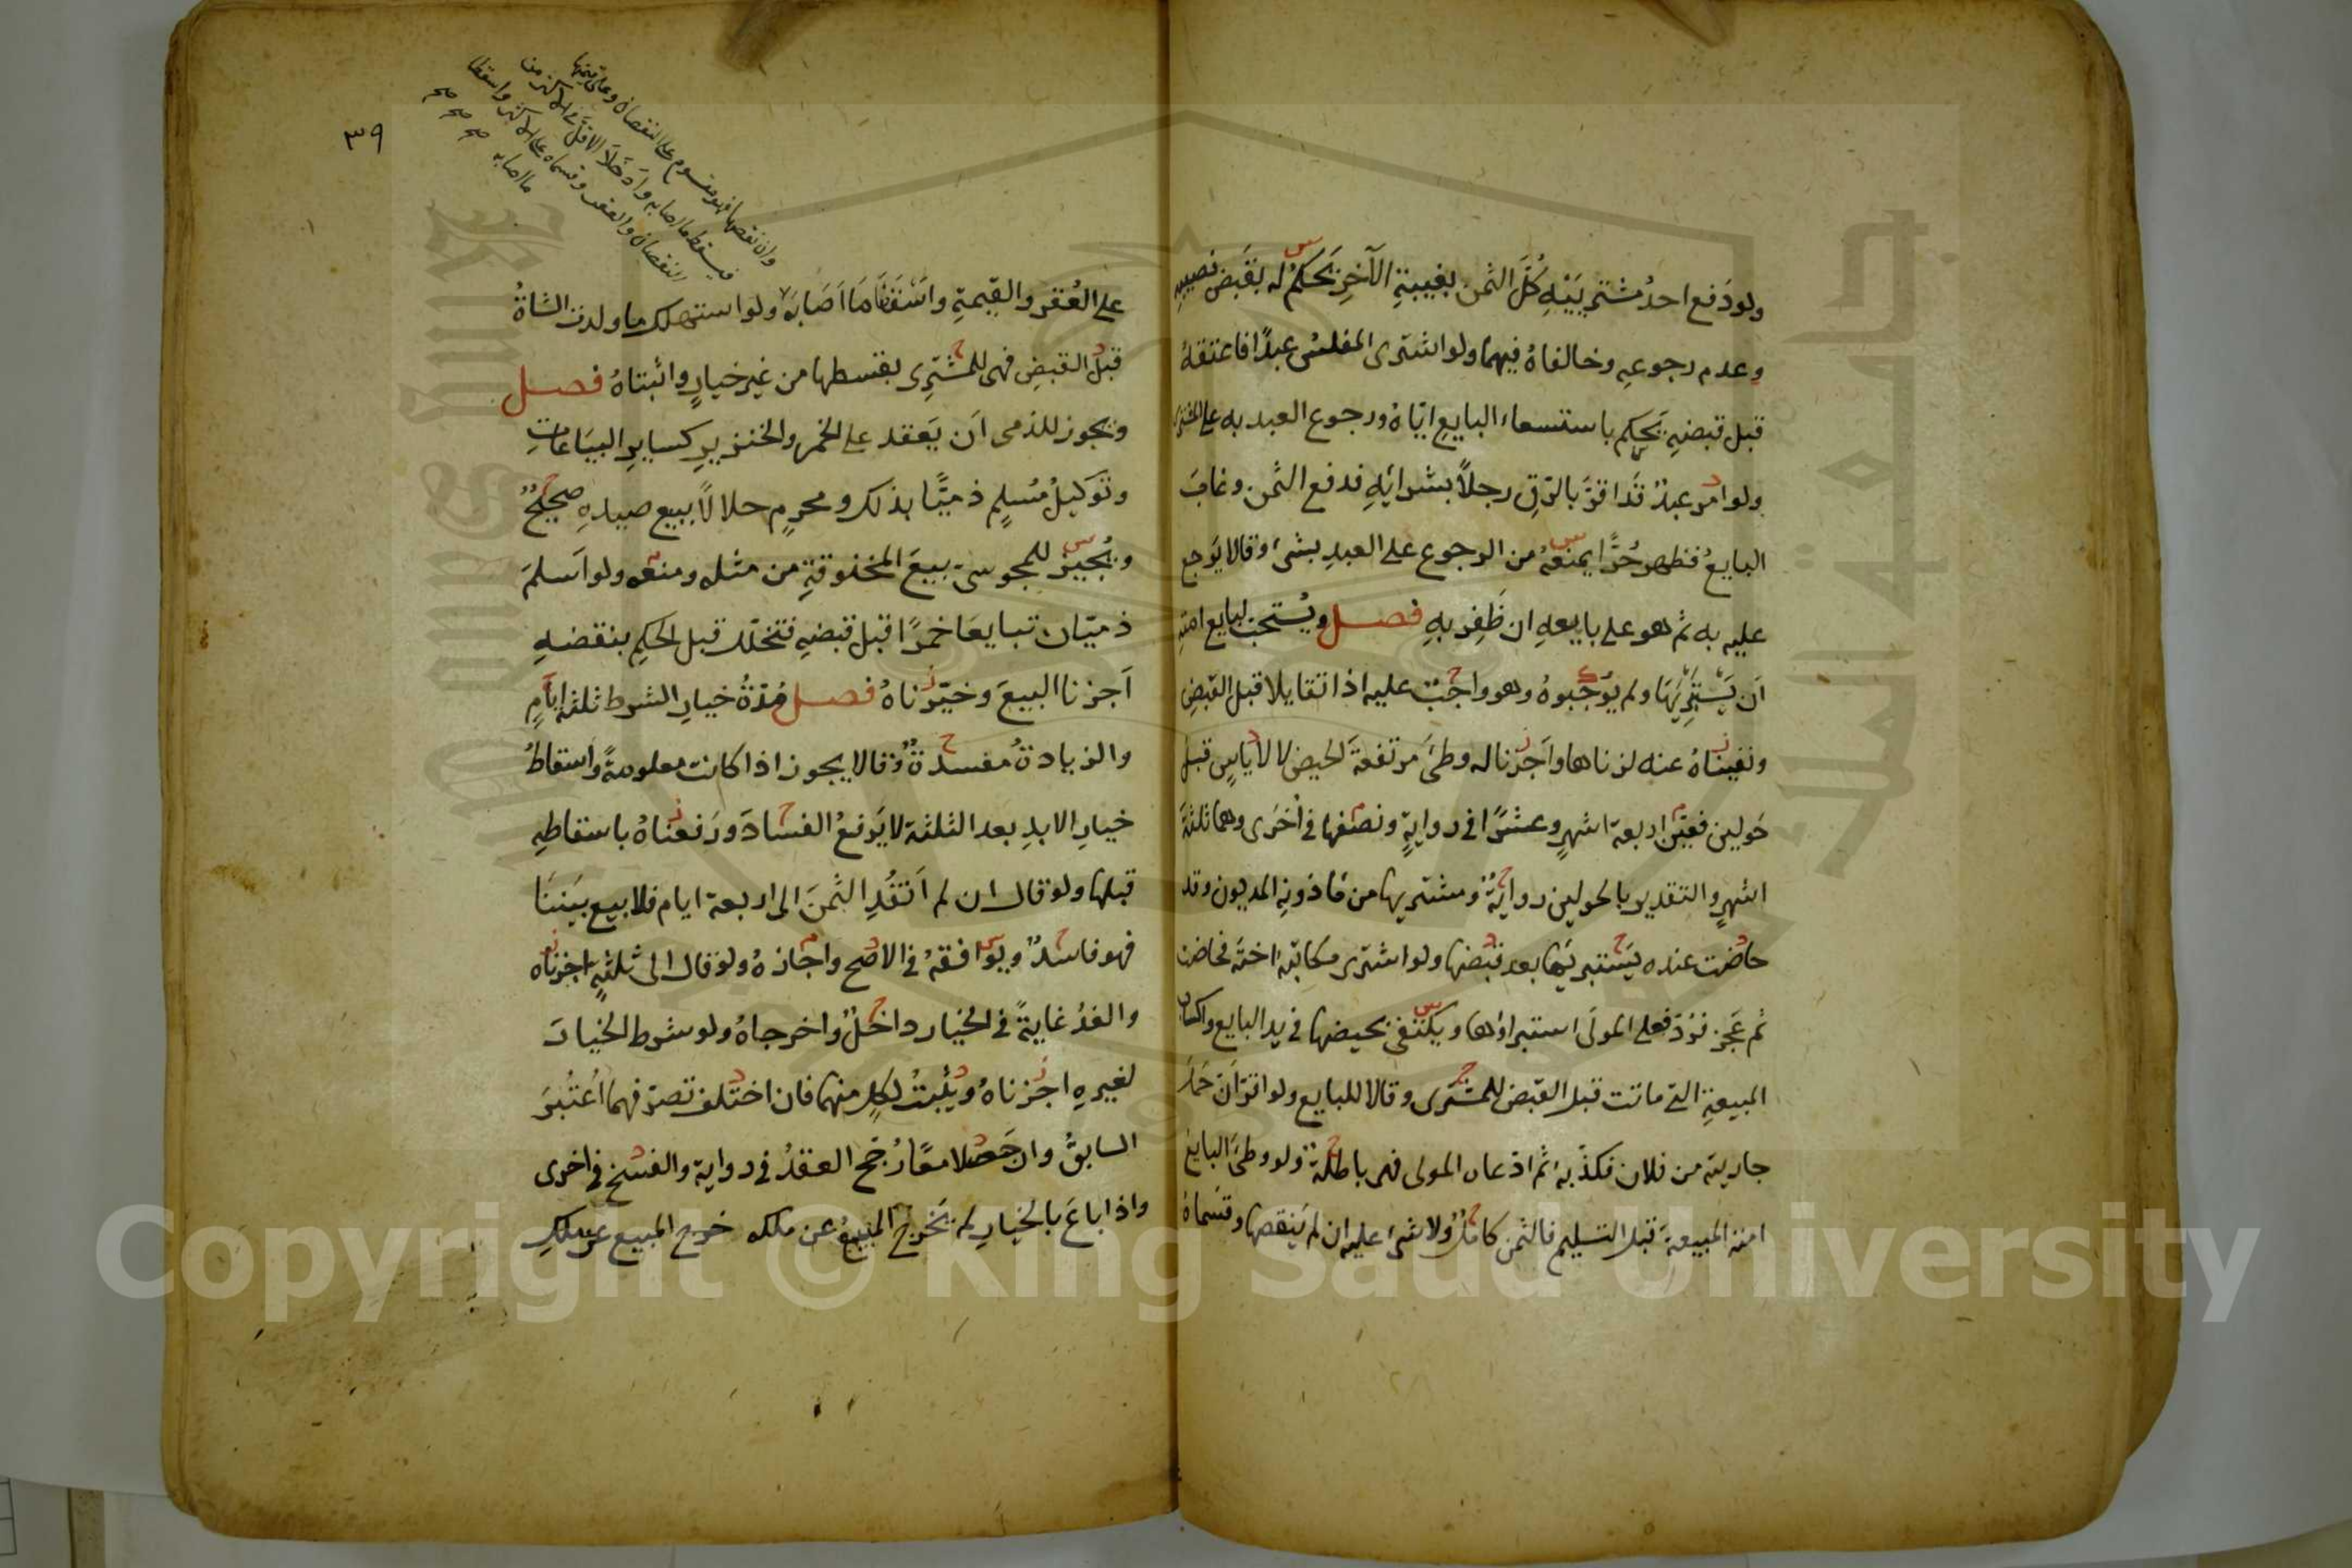 ولو دَفع احدُ مشتريَيْهِ كُلَّ الثمن بغيبةِ الآخرِ يَحكُمُ له بقَبضِ نصيبهِ
وعدم رجوعِه وخالفاهُ فيهما ولو اشترى المفلسُ عبدًا فاعتقهُ
قبل قبضهِ يَحكم باستسعاءِ البايعِ ايّاهُ ورجوع العبد به على المشترى
ولو امر عبدٌ قَد اقرَّ بالرّقِ رجلاً بشرائِهِ فدفع الثمن وغابَ
البايعُ فظهر حُرًّا يمنعُهُ من الرجوع على العبدِ بشئ وقالا يَرجع
عليه به ثم هو على بايعهِ ان ظَفِر بهِ فصل ويُستحبّ لبايع امتهِ
اَن يَستبرِئَها ولم يُوجبوهُ وهو واجبٌ عليه اذا تقايلا قبل القبضِ
ونفيناهُ عنه لزناها واَجزنا له وطئ مرتفعةَ الحيض لا لاياسٍ قبل
حَولين فعيّن اربعة اشهرٍ وعشرًا فى روايةٍ ونصفها فى اُخرَى وهما ثلثةَ
اشهرٍ والتقدير بالحولين روايةٌ ومشتريها من مَاذونهِ المديون وقد
حاضت عنده يَستبريها بعد قبضها ولو اشترى مكاتبٌ اختَه فحاضت
ثم عَجز فرُدّ فعلى المولَى استبراؤها ويكتفى بحيضها فى يد البايع واكساب
المبيعةِ التى ماتت قبل القبض للمشترى وقالا للبايع ولو اقرّ اَن حَملَ
جاريته من فلان فكذّبه ثم ادّعاه المولى فهى باطلةٌ ولو وطئ البايع
امته المبيعةَ قبل التسليم فالثمن كاملٌ ولا شئ عليه ان لم يَنقصها وقسَماهُ
٣٩
وان نقصها فهو مقسوم على النقصان وعلى قيمتها
فيسقط ما اصابه وادخَلاَ الاقلّ فى الاكثر من
النقصان والعقر وقسماه على الاكثر واسقطا
ما اصابه صح صح صح
على العُقر والقيمةِ واَسْقطَا مَا اَصَابَهُ ولو استهلك ما ولدت الشاةُ
قبلَ القبضِ فهى للمشتَرِى بقسطها من غيرِ خيارٍ واثبتاهُ فصل
ويجوز للذمى اَن يَعقد على الخمر والخنزيرِ كسايرِ البيَاعاتِ
وتوكيلُ مُسلِمٍ ذميًّا بذلك ومحرِمٍ حلالاً ببيع صيدهِ صحيحٌ
ويُجيزُ للمجوسى بيعَ المخنوقةِ من مثله ومنعه ولو اَسلمَ
ذميّان تبايعَا خمرًا قبل قبضهِ فتخلّل قبل الحكمِ بنقضهِ
اَجزنا البيعَ وخيّرناهُ فصل مُدّةُ خيارِ الشرط ثلثة ايّامٍ
والزيادةُ مفسدةٌ وقالا يجوز اذا كانت معلومةً واسقاطُ
خيارِ الابدِ بعد الثلثة لا يَرفعُ الفسادَ ورَفعناهُ باسقاطهِ
قبلها ولو قال ان لم اَنقُدِ الثَمنَ الى اربعة ايام فلا بيع بيَننَا
فهو فاسدٌ ويوافقهُ فى الاصح واجازهُ ولو قال الى ثلثةٍ اجزناه
والغدُ غايةً فى الخيار داخلٌ واخرجاهُ ولو شرط الخيارَ
لغيرهِ اجزناهُ ويُثبتُ لكلٍ منهما فان اختلف تصرّفهما اُعتُبرَ
السابقُ وان جَعلا معًا رُجّح العقدُ فى رواية والفسخ فى اخرى
واذا باعَ بالخيارِ لم يَخرج المبيعُ عن ملكه خرج المبيع عن ملكِ
Copyright © King Saud University